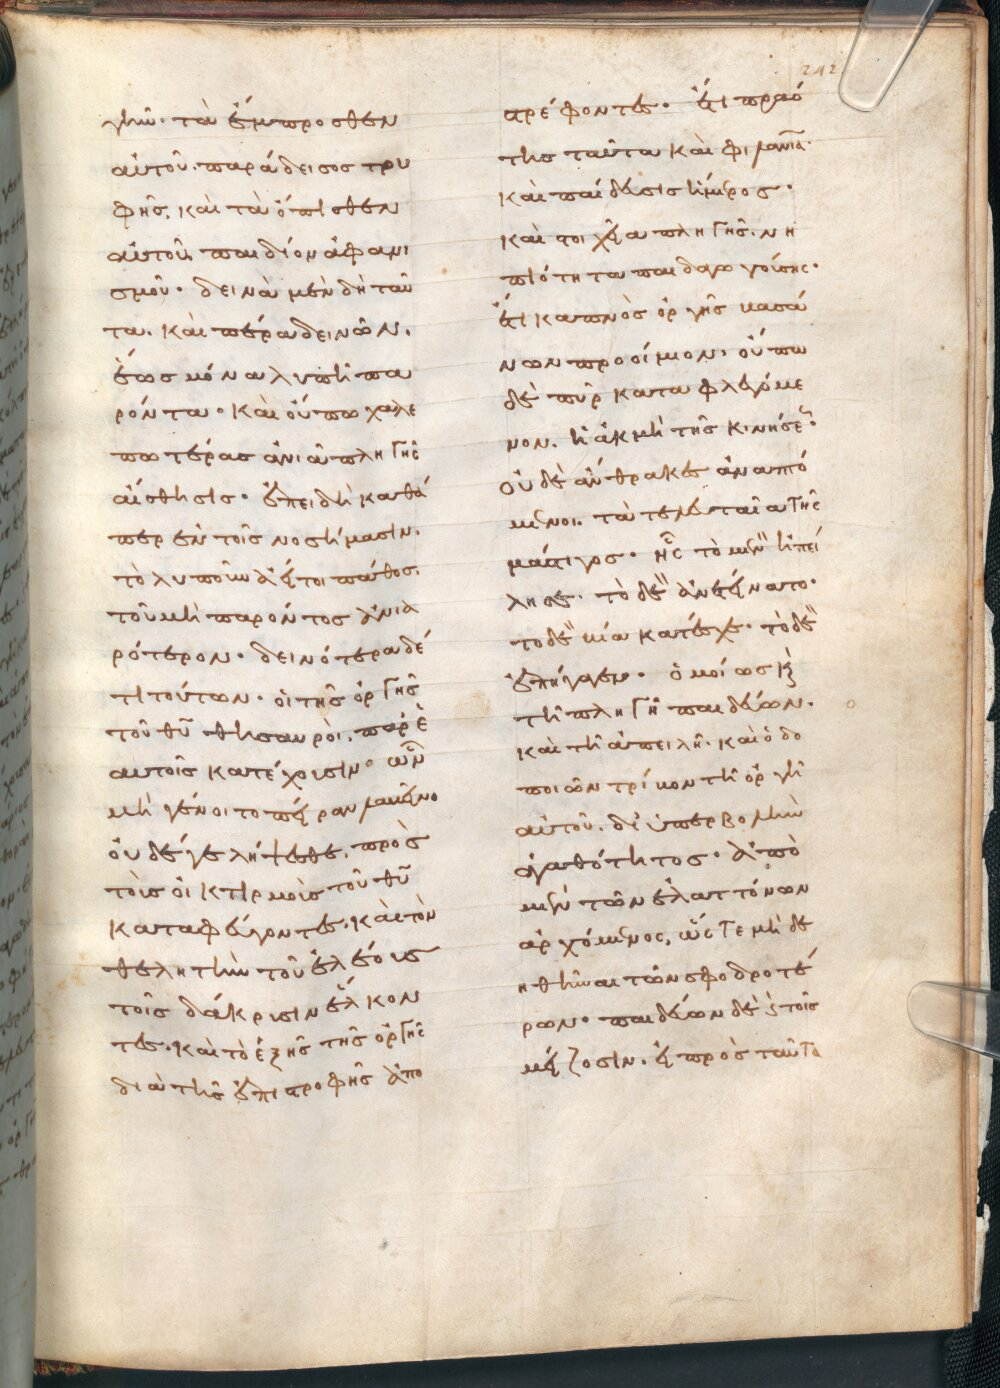 242
γῆν· τὰ ἔμπροσθεν
αὐτοῦ. παράδεισος τρυ
φῆς. καὶ τὰ ὄπισθεν
αὐτοῦ. παιδίον ἀφανι
σμοῦ· δεινὰ μὲν δὴ ταῦ
τα. καὶ πέρα δεινῶν.
ἕως μόνα λυπῆ τὰ πα
ρόντα· καὶ οὔπω χαλε
πωτέρας ἀνιᾶ πληγῆς
αἴσθησις· ἐπειδὴ καθά
περ ἐν τοῖς νοσήμασιν.
τὸ λυποῦν ἀεί τοι πάθος.
τοῦ μὴ παρόντος ἀνια
ρότερον· δεινότερα δέ
τι τούτων· οἱ τῆς ὀργῆς
τοῦ θῦ θησαυροὶ. παρ' ἑ
αυτοῖς κατέχουσιν· ὧν
μὴ γένοιτο πεῖραν λαβεῖν·
οὐδέ γε λήψεσθε. πρὸς
τοὺς οἰκτιρμοὺς τοῦ θῦ
καταφεύγοντες. καὶ τὸν
θελητὴν τοῦ ἐλέους
τοῖς δάκρυσιν ἕλκον
τες· καὶ τὸ ἑξῆς τῆς ὀργῆς
διὰ τῆς ἐπιστροφῆς ἀπο
στρέφοντες· ἔτι πραό
της ταῦτα καὶ φιλανία·
καὶ παίδευσις ἥμερος·
καὶ στοιχεῖα πληγῆς. νη
πιότητα παιδαγωγούσης·
ἔτι καπνὸς ὀργῆς βασά
νων προοίμιον· οὔπω
δὲ πῦρ καταφλεγόμε
νον. ἡ ἀκμὴ τῆς κινήσεως·
οὐδὲ ἄνθρακες ἀναπτό
μενοι. τὰ τελευταῖα τῆς
μάστιγος· ἧς τὸ μὲν ἠπεί
λησε· τὸ δὲ ἀνετείνατο·
τὸ δὲ βία κατέσχε· τὸ δὲ
ἐπήγαγεν· ὁμοίως κ
τῆ πληγῆ παιδεύων.
καὶ τῆ ἀπειλῆ· καὶ ὁδο
ποιῶν τρίβον τῆ ὀργῆ
αὐτοῦ. δι' ὑπερβολὴν
ἀγαθότητος· ἀπὸ
μὲν τῶν ἐλαττόνων
ἀρχόμενος, ὥστε μὴ δε
ηθῆναι τῶν σφοδροτέ
ρων· παιδεύων δὲ κ τοῖς
μείζοσιν. εἰ πρὸς ταῦτα